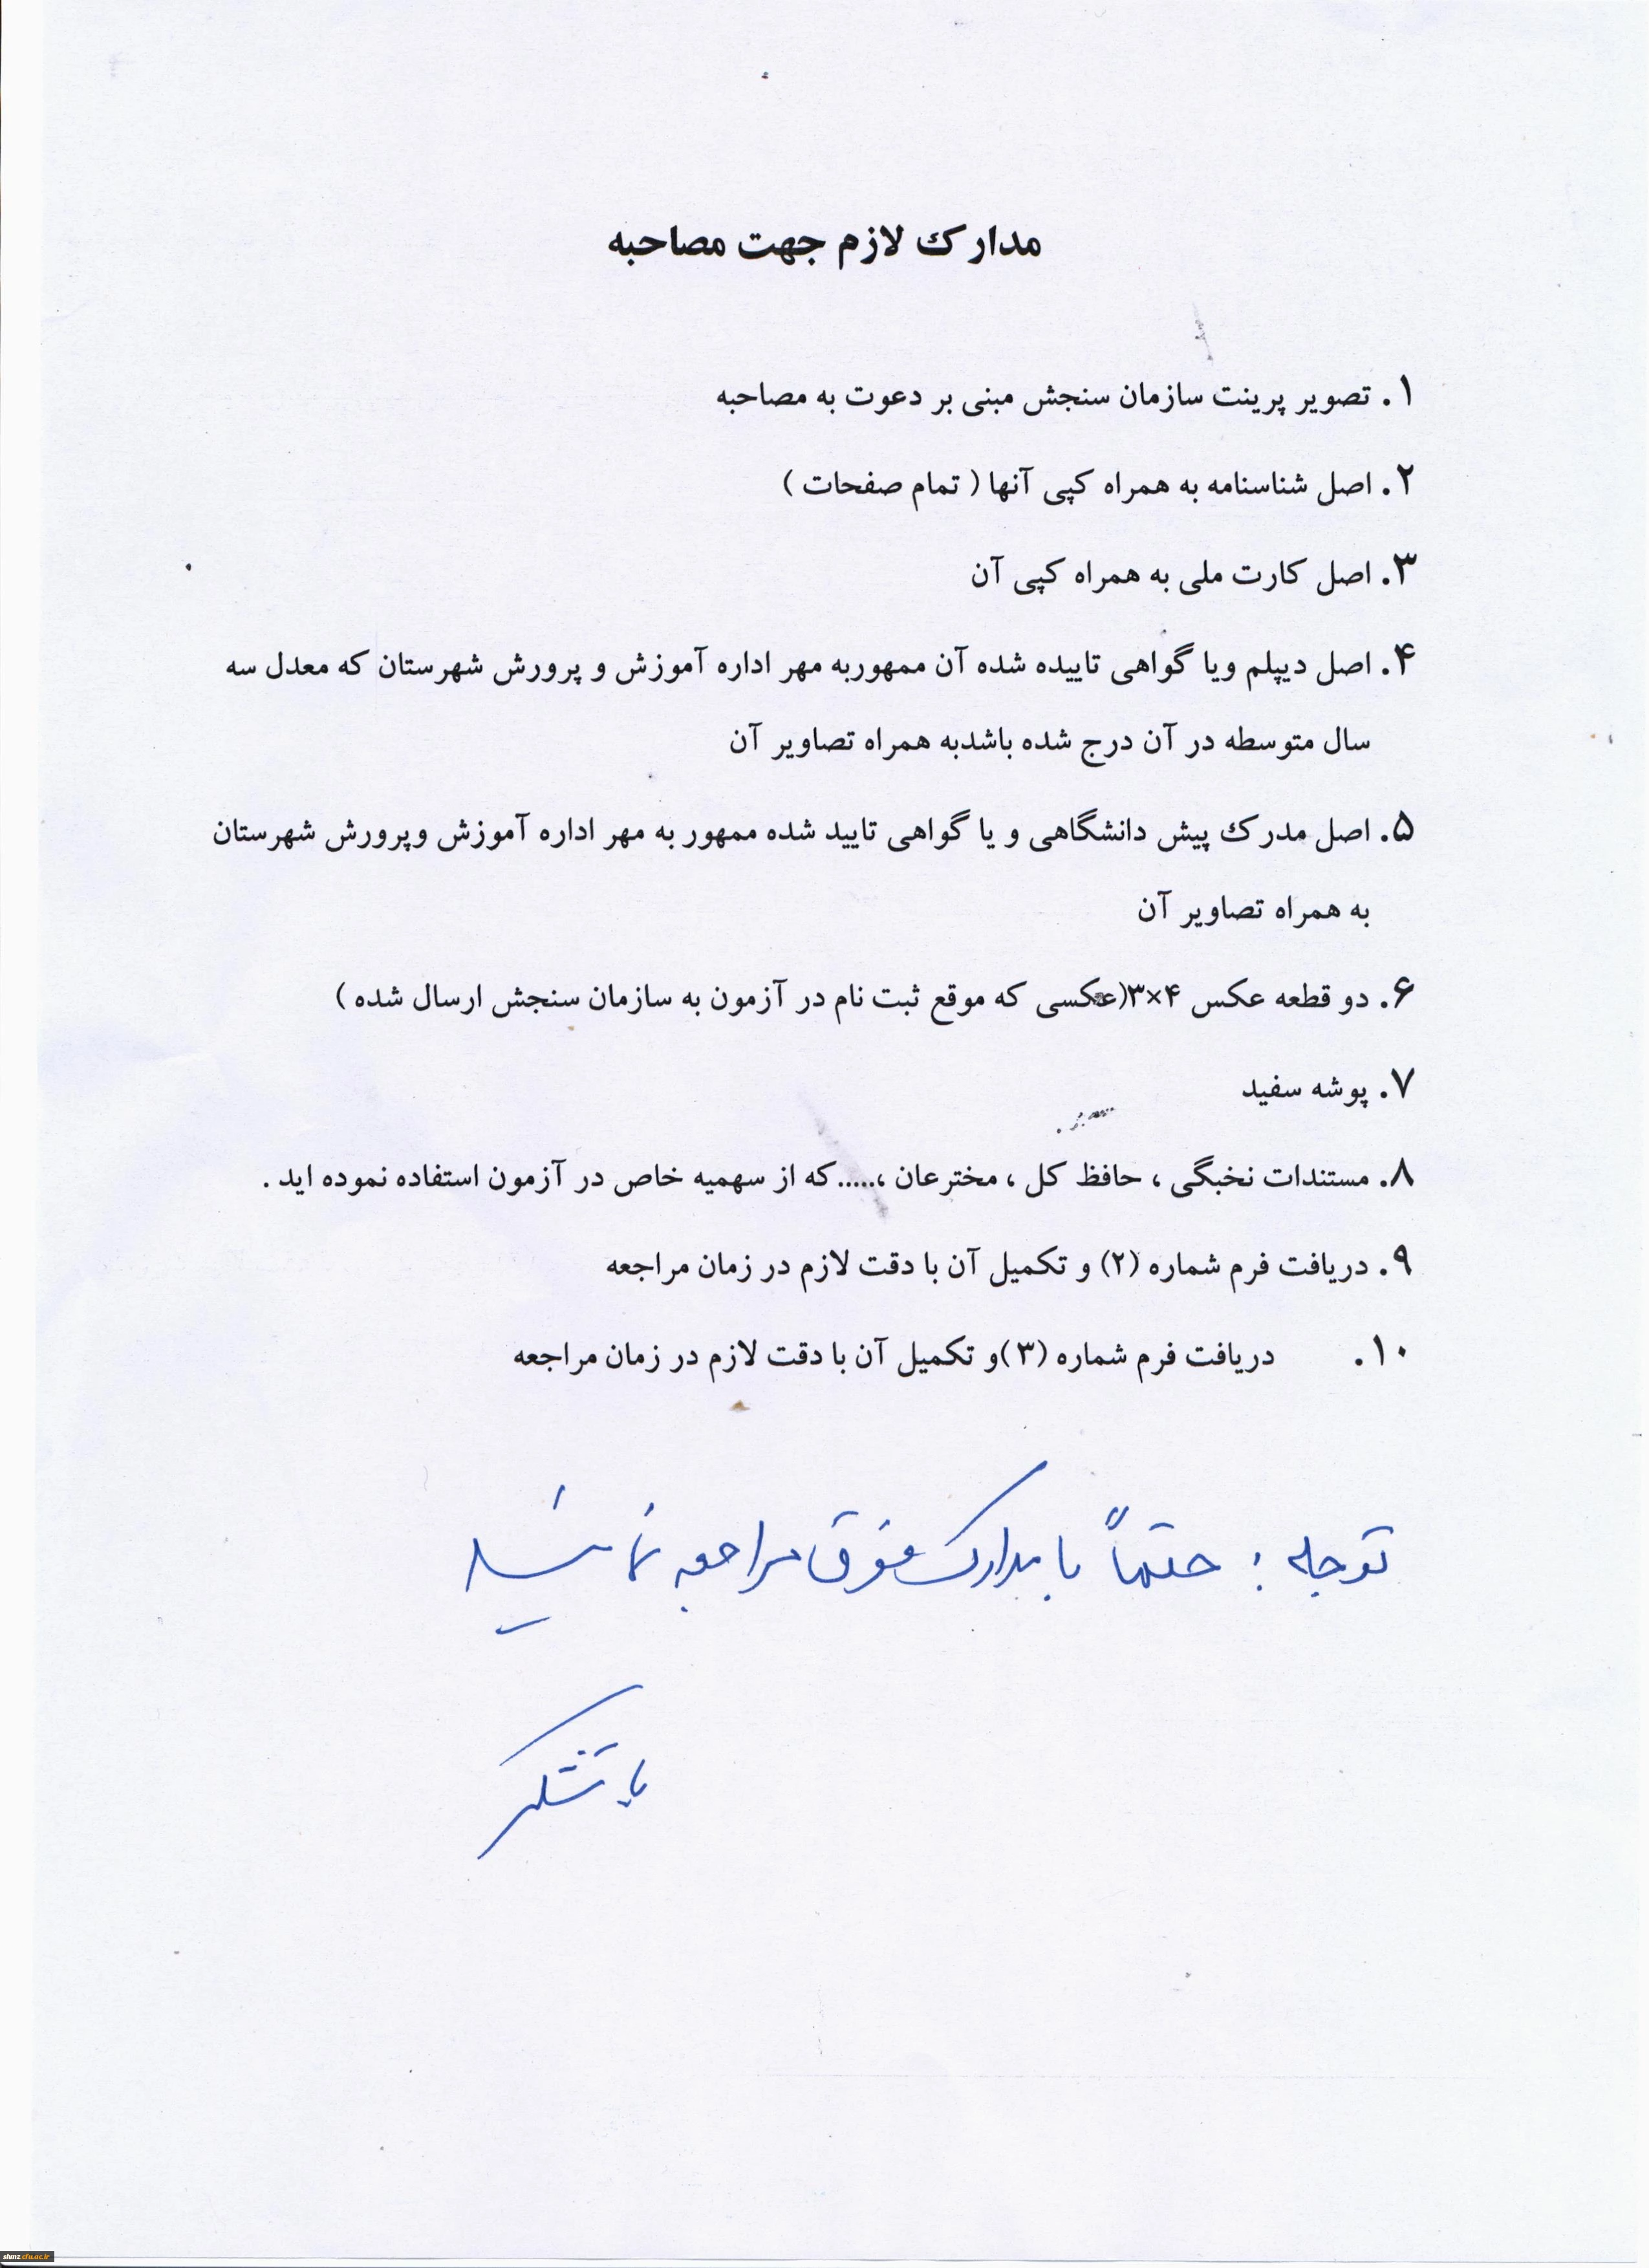 مدارک لازم جهت مصاحبه
۱. تصویر پرینت سازمان سنجش مبنی بر دعوت به مصاحبه
۲. اصل شناسنامه به همراه کپی آنها ( تمام صفحات )
۳. اصل کارت ملی به همراه کپی آن
۴. اصل دیپلم ویا گواهی تاییده شده آن ممهوربه مهر اداره آموزش و پرورش شهرستان که معدل سه
سال متوسطه در آن درج شده باشدبه همراه تصاویر آن
۵. اصل مدرک پیش دانشگاهی و یا گواهی تایید شده ممهور به مهر اداره آموزش وپرورش شهرستان
به همراه تصاویر آن
۶. دو قطعه عکس ۴×۳(عکسی که موقع ثبت نام در آزمون به سازمان سنجش ارسال شده )
۷. پوشه سفید
۸. مستندات نخبگی ، حافظ کل ، مخترعان ،.....که از سهمیه خاص در آزمون استفاده نموده اید .
۹. دریافت فرم شماره (۲) و تکمیل آن با دقت لازم در زمان مراجعه
۱۰. دریافت فرم شماره (۳)و تکمیل آن با دقت لازم در زمان مراجعه
توجه : حتماً با مدارک فوق مراجعه نمائید
با تشکر
shmz.cfu.ac.ir